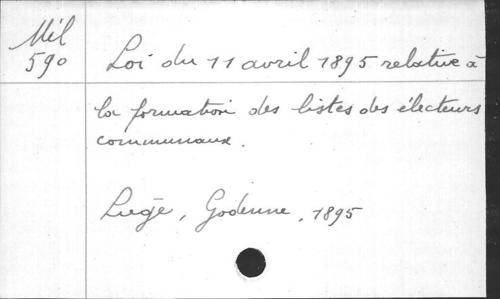 Mil
590
Loi du 11 avril 1895 relative à
la formation des listes des électeurs
communaux.
Liège, Godenne, 1895